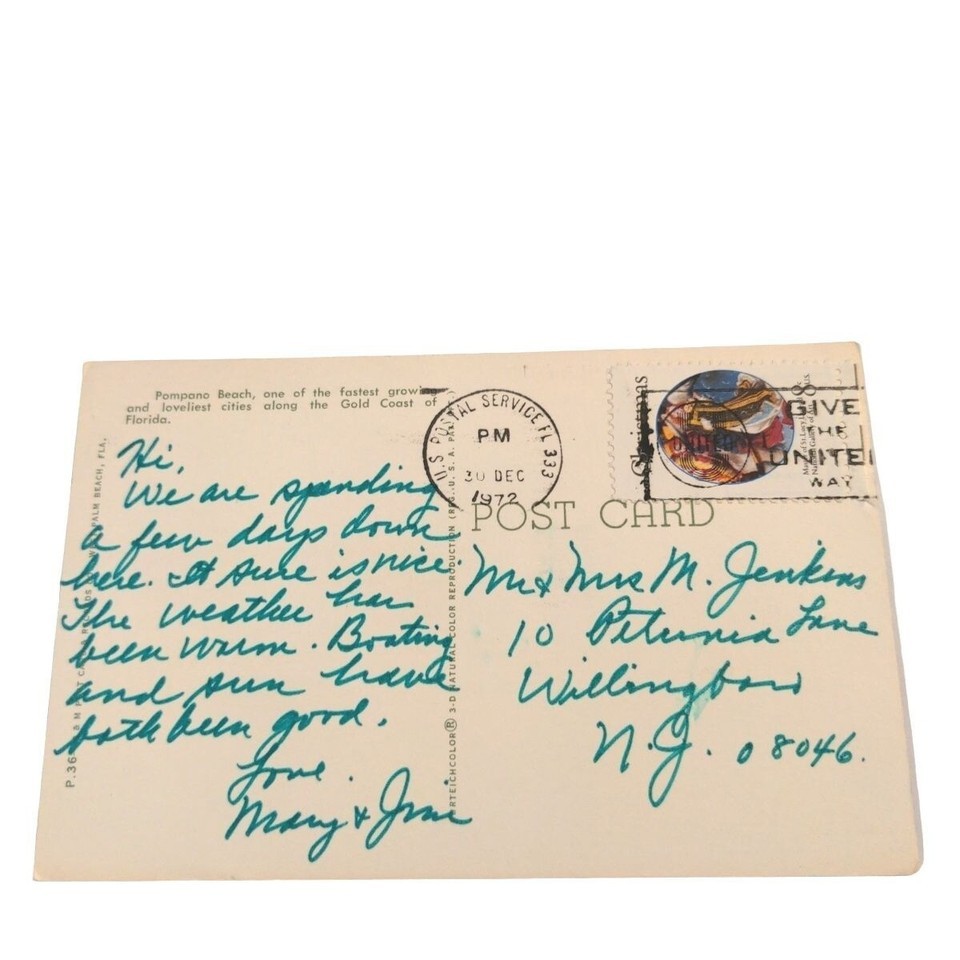 Pompano Beach, one of the fastest growing
and loveliest cities along the Gold Coast of
Florida.
Hi,
We are spending
a few days down
here. It sure is nice.
The weather has
been warm. Boating
and sun have
both been good.
Love.
Mary &
U.S. POSTAL SERVICE, FL 333
PM
30 DEC
1972
Christmas
8
GIVE
THE
UNITED
WAY
POST CARD
Mr & Mrs M. Jenkins
10 Petunia Lane
Willingboro
N.J. 08046.
PALM BEACH, FLA.
3-D NATURAL COLOR REPRODUCTION (REG. U.S.A. PAT.
P.36